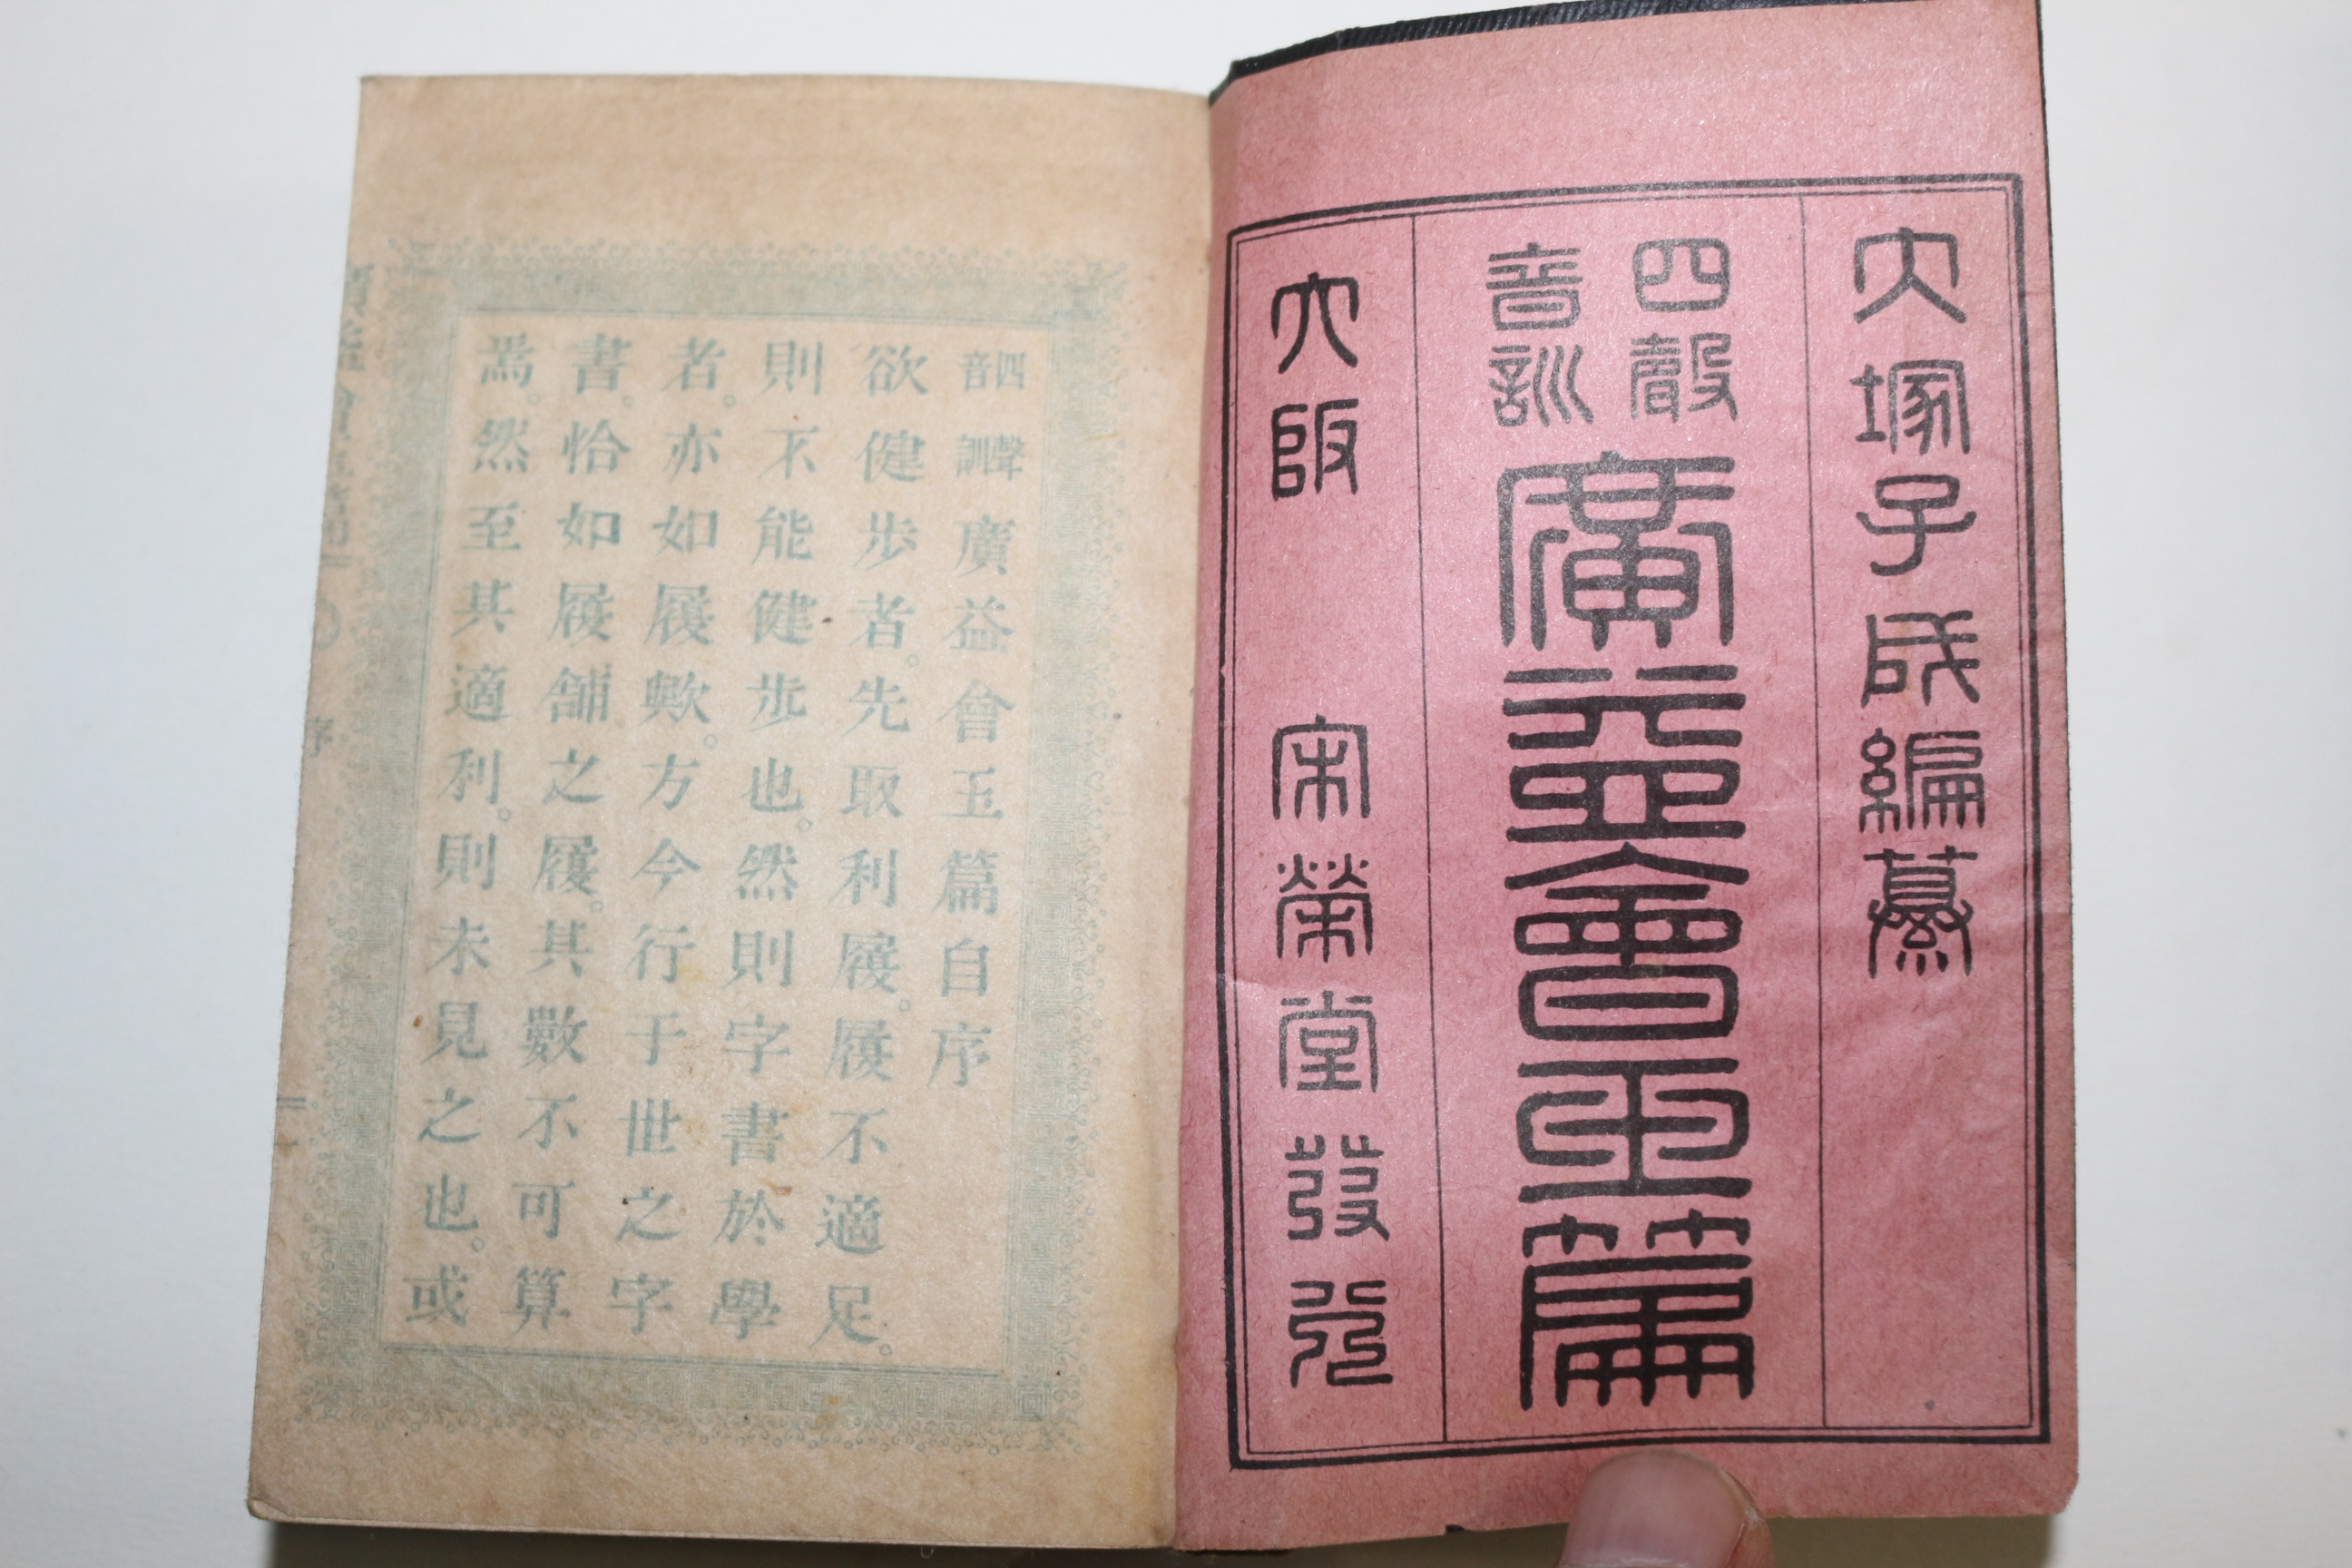 大塚子成編纂
四聲音訓
廣益會玉篇
大阪 宋榮堂發兌
四聲音訓 廣益會玉篇自序
欲健步者。先取利屐。屐不適足。
則不能健步也。然則字書於學
者。亦如屐歟。方今行于世之字
書。恰如屐舖之屐。其數不可算
焉。然至其適利。則未見之也。或
序